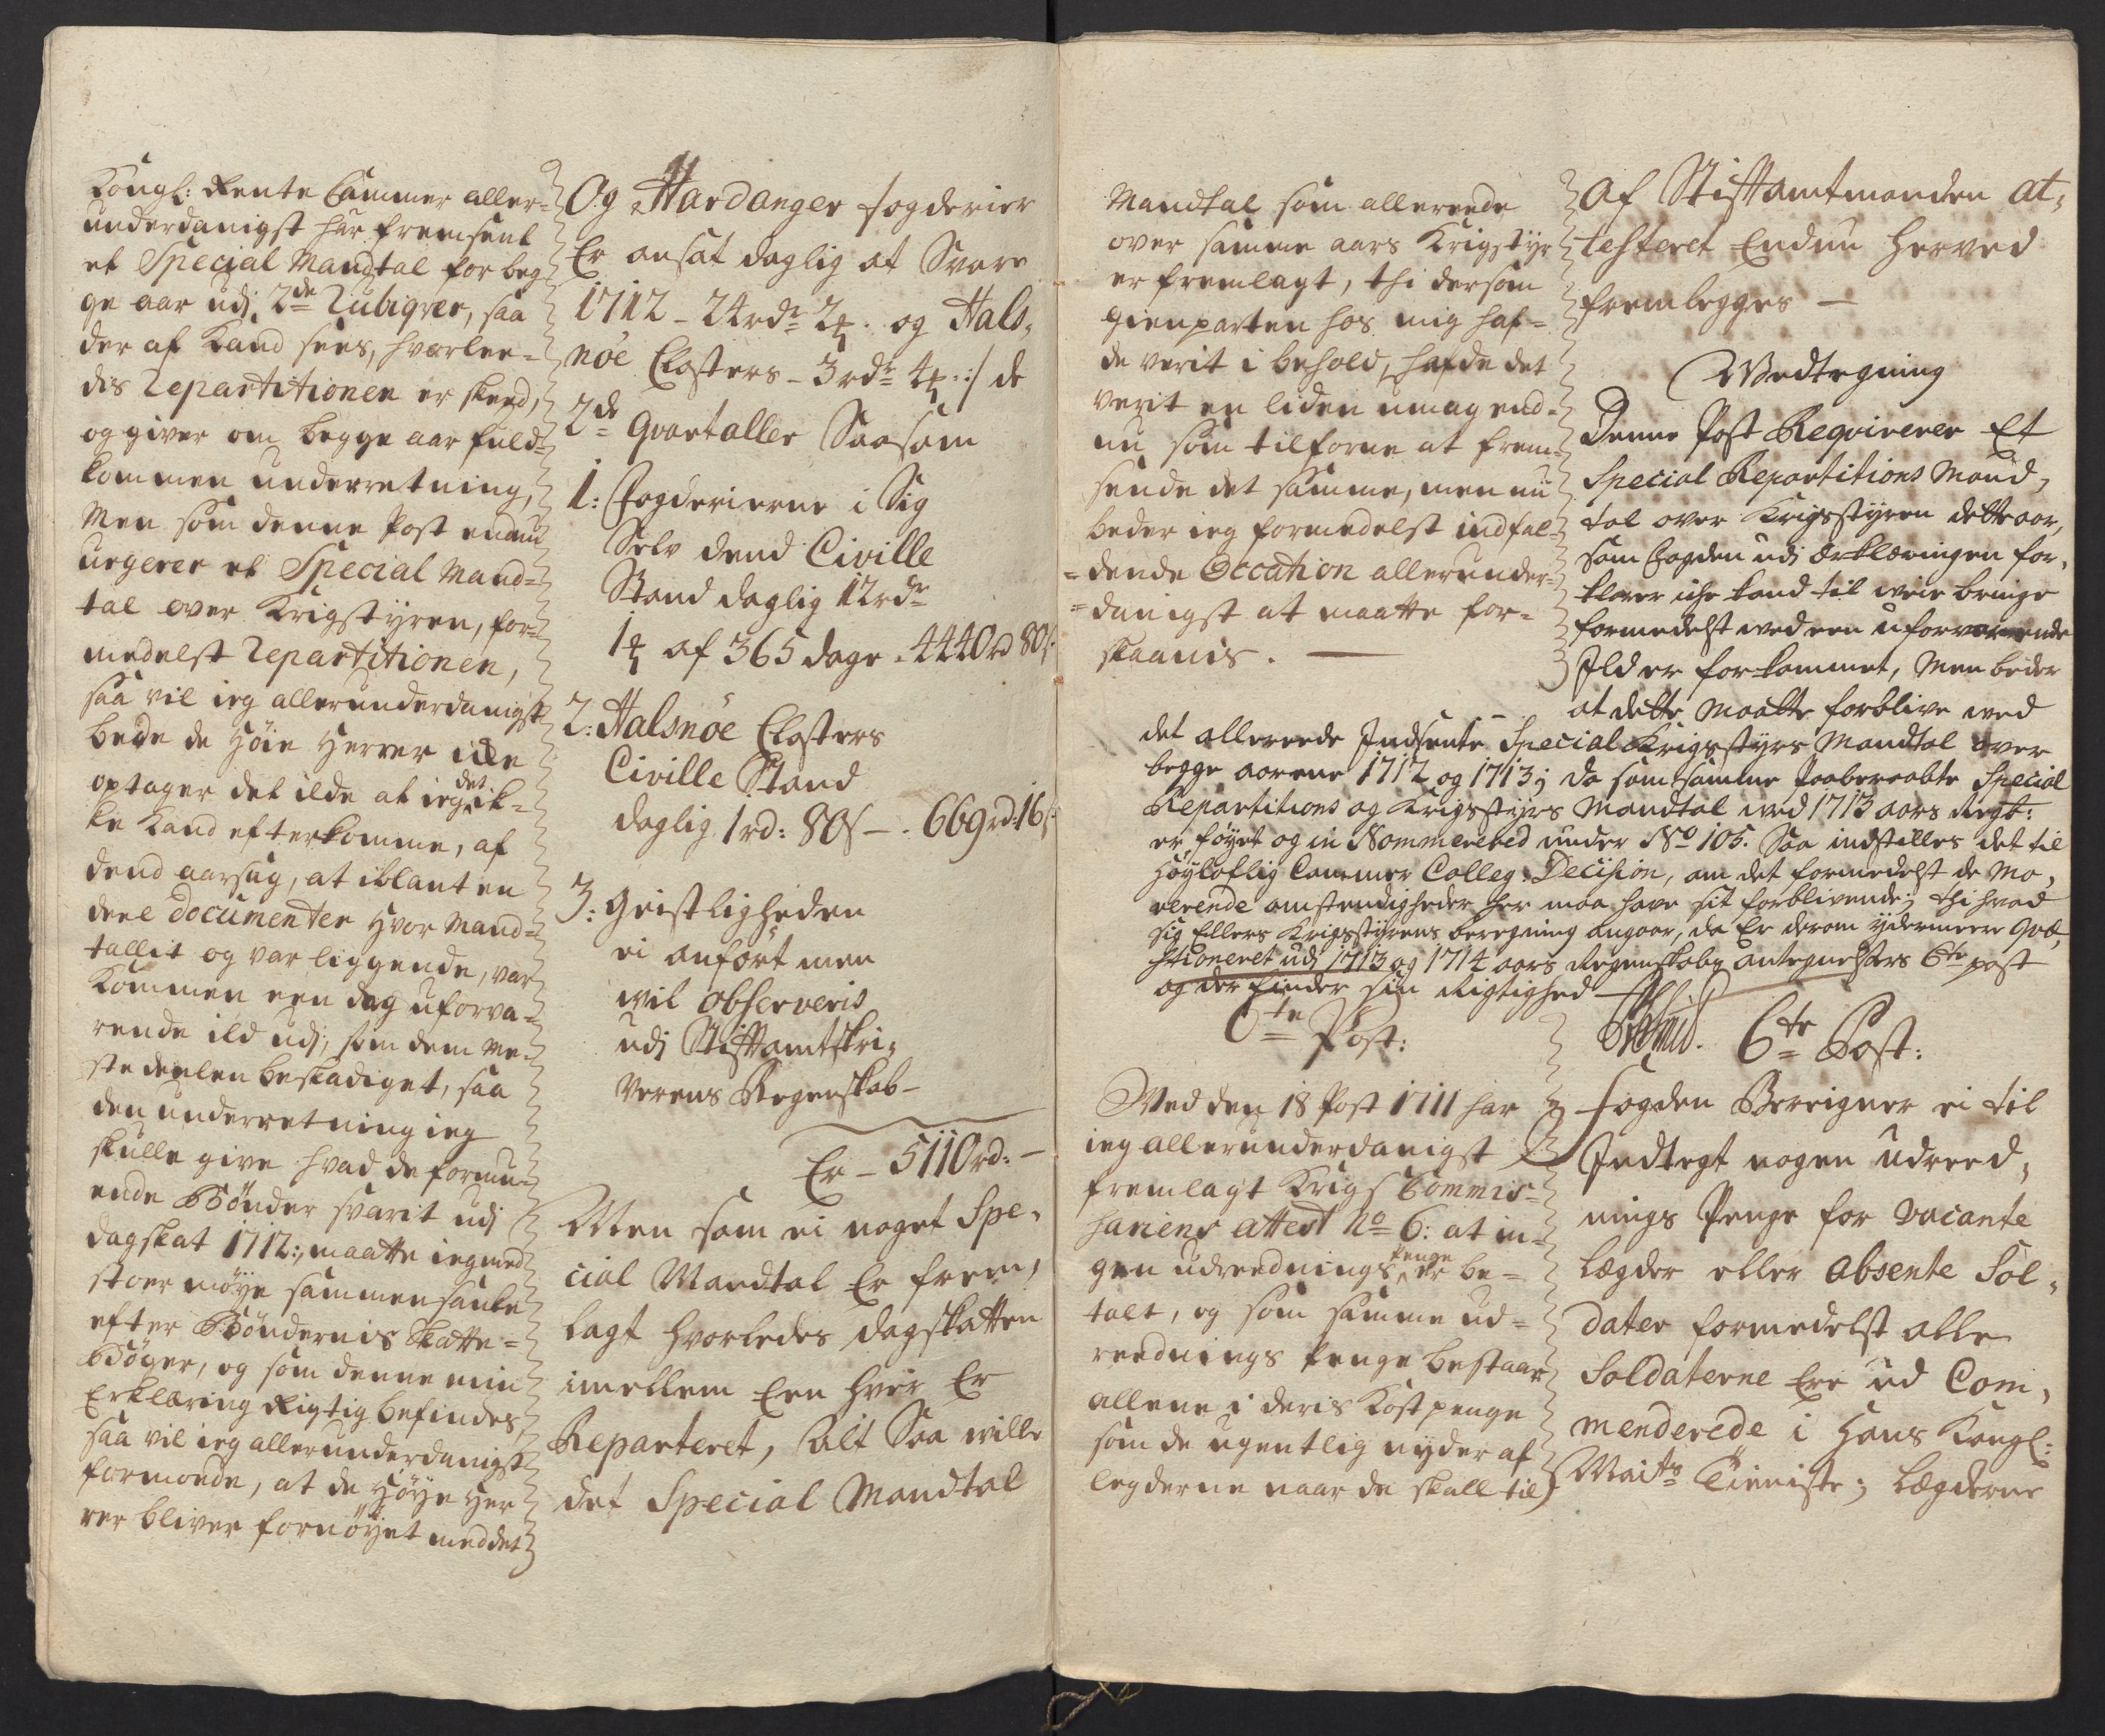 Kongl: Rente Cammer aller-
underdanigst har fremsent
et Special Mandtal for beg-
ge aar udj 2de Rubiqver, saa
der af kand sees, hvorlee-
dis Repartitionen er skeed,
og giver om begge aar fuld-
kommen underretning,
Men som denne Post endnu
urgerer et Special Mand-
tal over Krigstyren, for-
medelst Repartitionen,
saa vil ieg allerunderdanigst
bede de Høie Herrer icke
optager det ilde at ieg det ik-
ke kand efterkomme, af
dend aarsag, at iblant en
deel documenter hvor Mand-
tallit og var liggende, var
kommen een dag uforva-
rende ild udj, som dem me-
ste deelen beskadiget, saa
den underretning ieg
skulle give hvad de formu-
ende Bønder svarit udj
dagskat 1712:, maatte ieg med
stoer møye sammensancke
efter Bøndernis Skatte-
Bøger, og som denne min
Erklæring Rigtig befindes,
saa vil ieg allerunderdanigst
formode, at de Høye Her
rer bliver fornøyet med det
Og Hardanger fogderier
Er ansat daglig at Svare
1712 - 24rdr 2 ₰. og Hals-
nöe Closters - 3rdr 4 ₰ :/ de
2de Qvartaller Saasom
1: Fogderierne i Sig
Selv dend Civille
Stand daglig 12rdr
1 ₰ af 365 dage - 4440rd 80s:
2: Halsnöe Closters
Civille Stand
daglig 1rd: 80s - . 669rd:16s:
3: Geistligheden
ei anført men
vil observeris
udj Stiftamtskri-
verens Regenskab -
Er - 5110rd: -
Men som ei noget Spe-
cial Mandtal Er frem-
lagt hvorledes dagskatten
imellem Een hver Er
Reparteret, Alt Saa wille
det Special Mandtal
Mandtal som allereede
over samme aars Krigstyr
er fremlagt, thi dersom
gienparten hos mig haf-
de verit i behold, hafde det
verit en liden umag end-
nu som tilforne at frem-
sende det samme, men nu
beder ieg formedelst indfal-
dende Occation allerunder-
danigst at maatte for-
skaanis. -
Af Stiftamtmanden at-
testeret Endnu herved
fremlegges -
Wedtegning
Denne Post Reqvirerer Et
Special Repartitions Mand-
tal over Krigsstyren dette aar,
som Fogden udj Erklæringen for-
klarer iche kand til weie bringe
formedelst ved een uforvarende
Ild er forkommet, Men beder
at dette maatte forblive ved
det allereede Indsente Special Krigsstyrs Mandtal over
begge aarene 1712 og 1713; da som samme Paaberaabte Special
Repartitions og Krigsstyrs Mandtal ved 1713 aars Regt:
er føyet og in Nommerered under No 105. Saa indstilles det til
Høyloflig Cammer Colleg: Decision, om det formedelst de mo-
verende omstendigheder her maa have sit forblivende; thi hvad
sig Ellers Krigsstyrens beregning angaar, da Er derom ydermeere Qvæ-
stioneret udj 1713 og 1714 aars Regenskabs antegnelsers 6te post
og der finder sin Rigtighed
6te Post:
Ved den 18 Post 1711 har
ieg allerunderdanigst
fremlagt Krigs Commis-
sariens attest No 6: at in-
gen udreednings penge er be-
talt, og som samme ud-
reednings penge bestaar
allene i deris Kostpenge
som de ugentlig nyder af
legderne naar de skall til
6te Post:
Fogden Bereigner ei til
Indtegt nogen Udreed-
nings Penge for vacante
Lægder eller absente Sol-
dater formedelst alle
Soldaterne Ere ud Com-
menderede i Hans Kongl:
Maits Tieniste; Lægderne